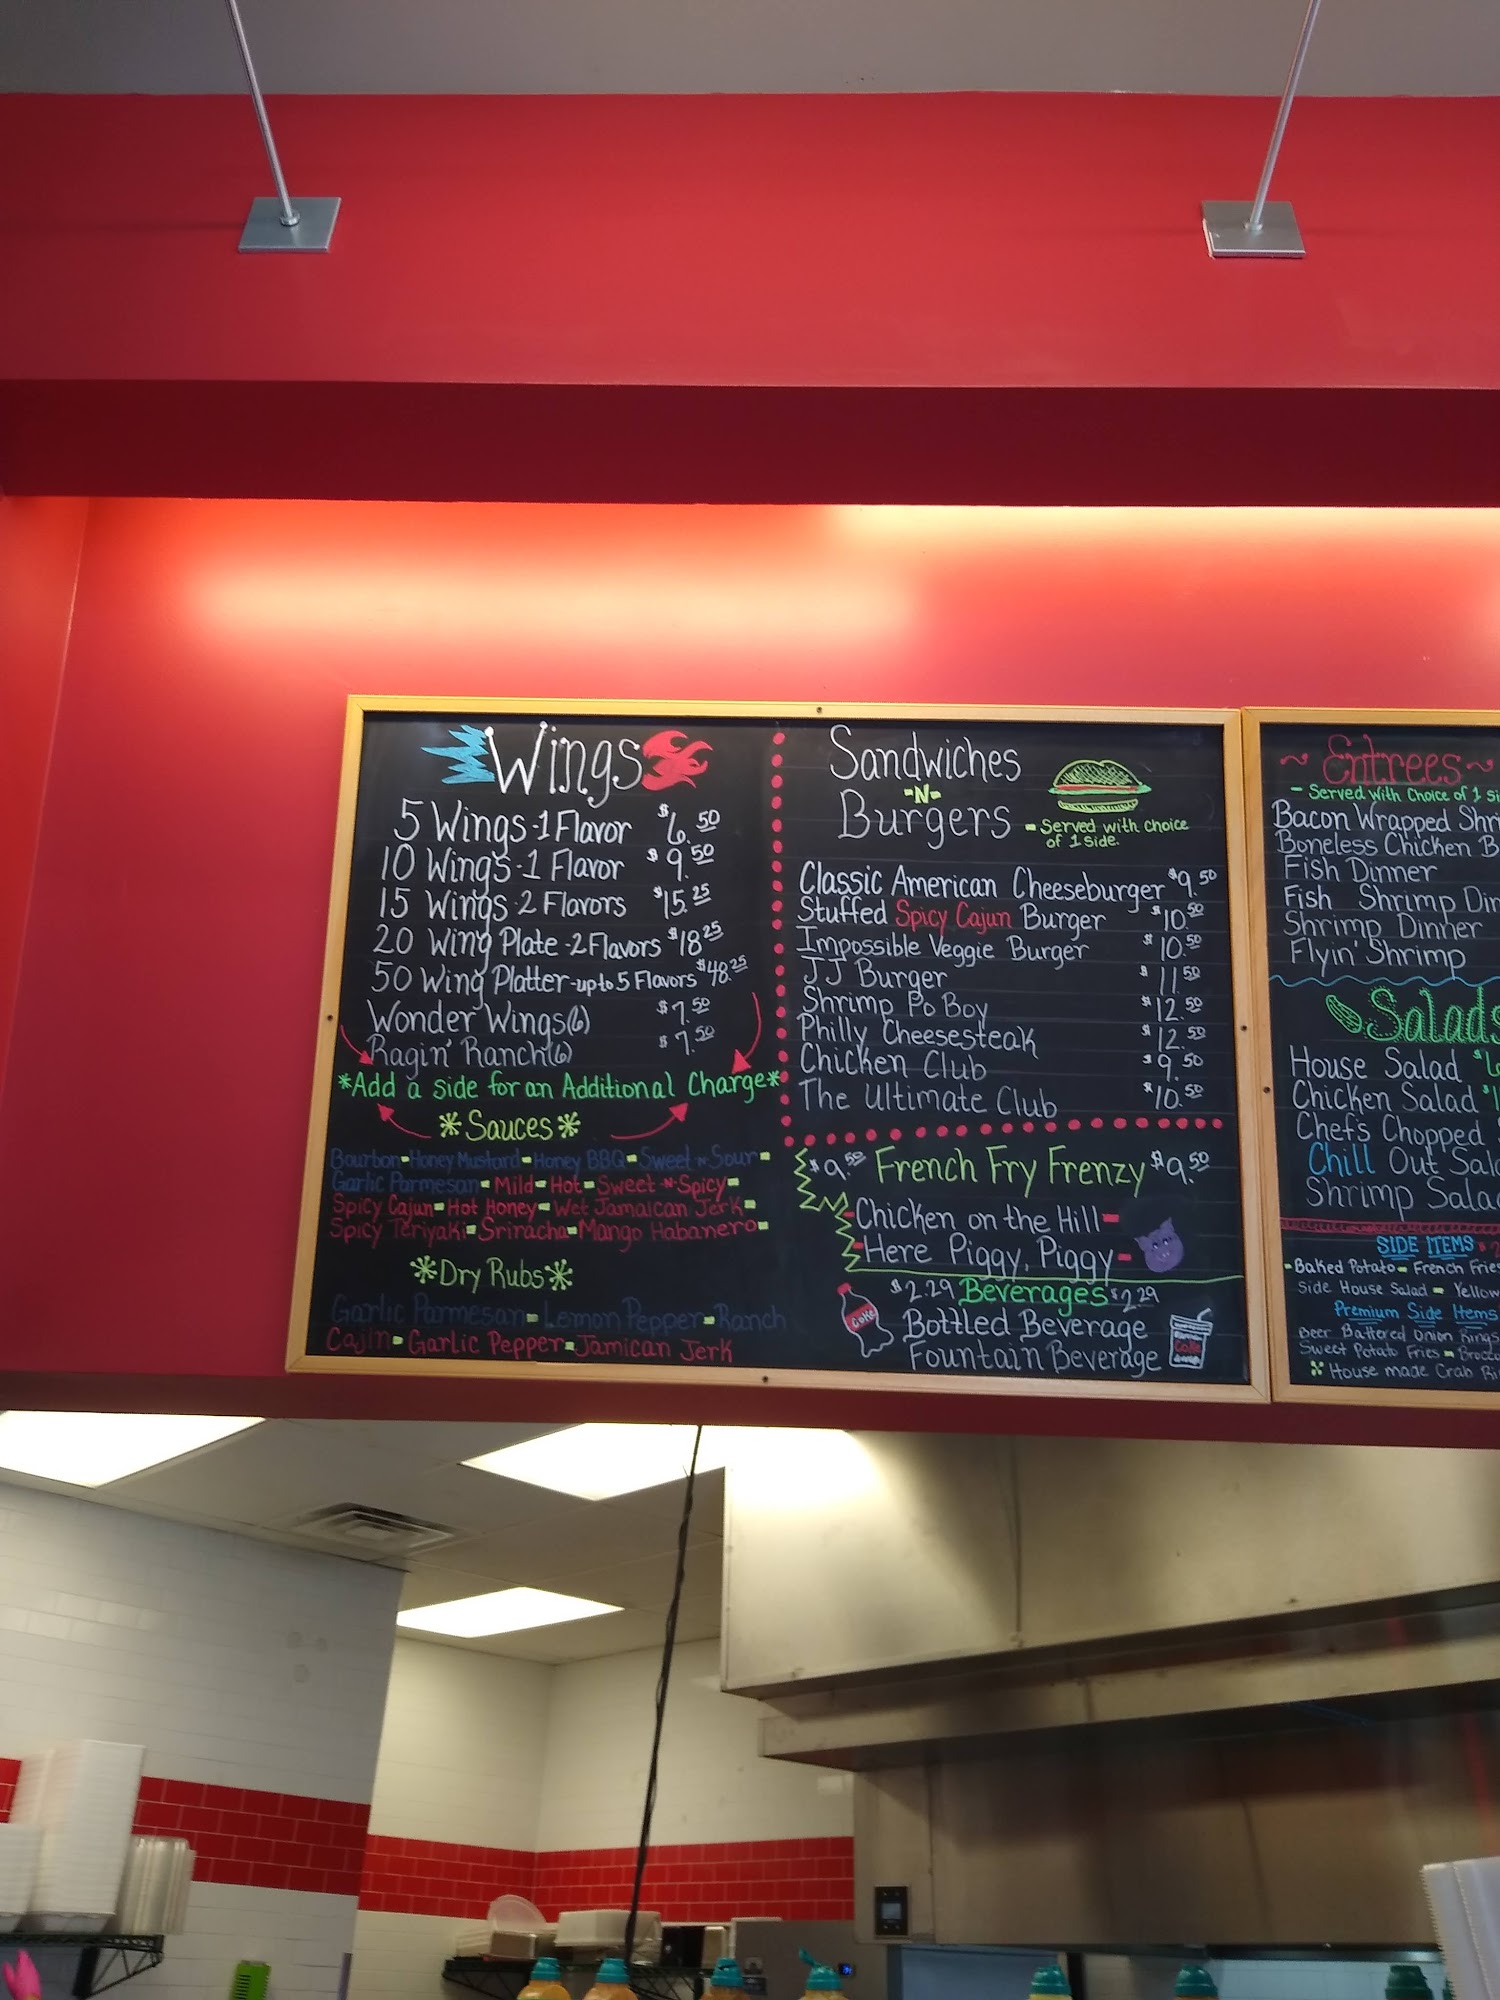 Wings
5 Wings-1 Flavor $6.50
10 Wings-1 Flavor $9.50
15 Wings-2 Flavors $15.25
20 Wing Plate-2 Flavors $18.25
50 Wing Platter-up to 5 Flavors $48.25
Wonder Wings(6) $7.50
Ragin' Ranch(6) $7.50
*Add a side for an Additional Charge*
*Sauces*
Bourbon-Honey Mustard-Honey BBQ-Sweet-n-Sour-
Garlic Parmesan-Mild-Hot-Sweet-N-Spicy-
Spicy Cajun-Hot Honey-Wet Jamaican Jerk-
Spicy Teriyaki-Sriracha-Mango Habanero-
*Dry Rubs*
Garlic Parmesan-Lemon Pepper-Ranch
Cajin-Garlic Pepper-Jamican Jerk
Sandwiches
-N-
Burgers
-Served with choice
of 1 side.
Classic American Cheeseburger $9.50
Stuffed Spicy Cajun Burger $10.50
Impossible Veggie Burger $10.50
JJ Burger $11.50
Shrimp Po Boy $12.50
Philly Cheesesteak $12.50
Chicken Club $9.50
The Ultimate Club $10.50
$9.50 French Fry Frenzy $9.50
-Chicken on the Hill-
-Here Piggy, Piggy-
$2.29 Beverages $2.29
Bottled Beverage
Fountain Beverage
Coke
Coke
~Entrees~
-Served with Choice of 1
Bacon Wrapped
Boneless Chicken
Fish Dinner
Fish Shrimp
Shrimp Dinner
Flyin' Shrimp
Salads
House Salad
Chicken Salad
Chefs Chopped
Chill Out
Shrimp
SIDE ITEMS
-Baked Potato-French Fries
Side House Salad-Yellow
Premium Side Items
Beer Battered Onion Rings
Sweet Potato Fries-
House made Crab